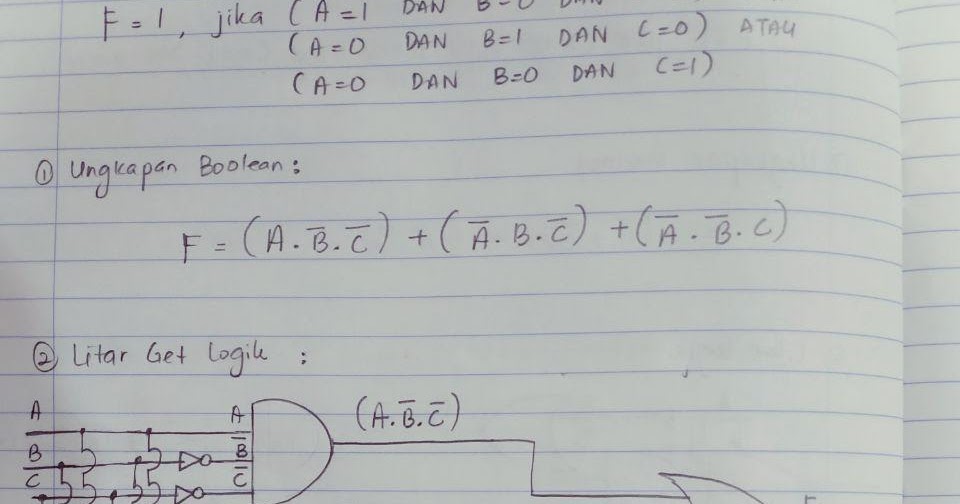 F = 1, jika (A=1 DAN B=0 DAN
(A=0 DAN B=1 DAN C=0) ATAU
(A=0 DAN B=0 DAN C=1)
① Ungkapan Boolean:
F = (A.B̅.C̅) + (A̅.B.C̅) + (A̅.B̅.C)
② Litar Get Logik :
A A (A.B̅.C̅)
B B̅
C C̅
F